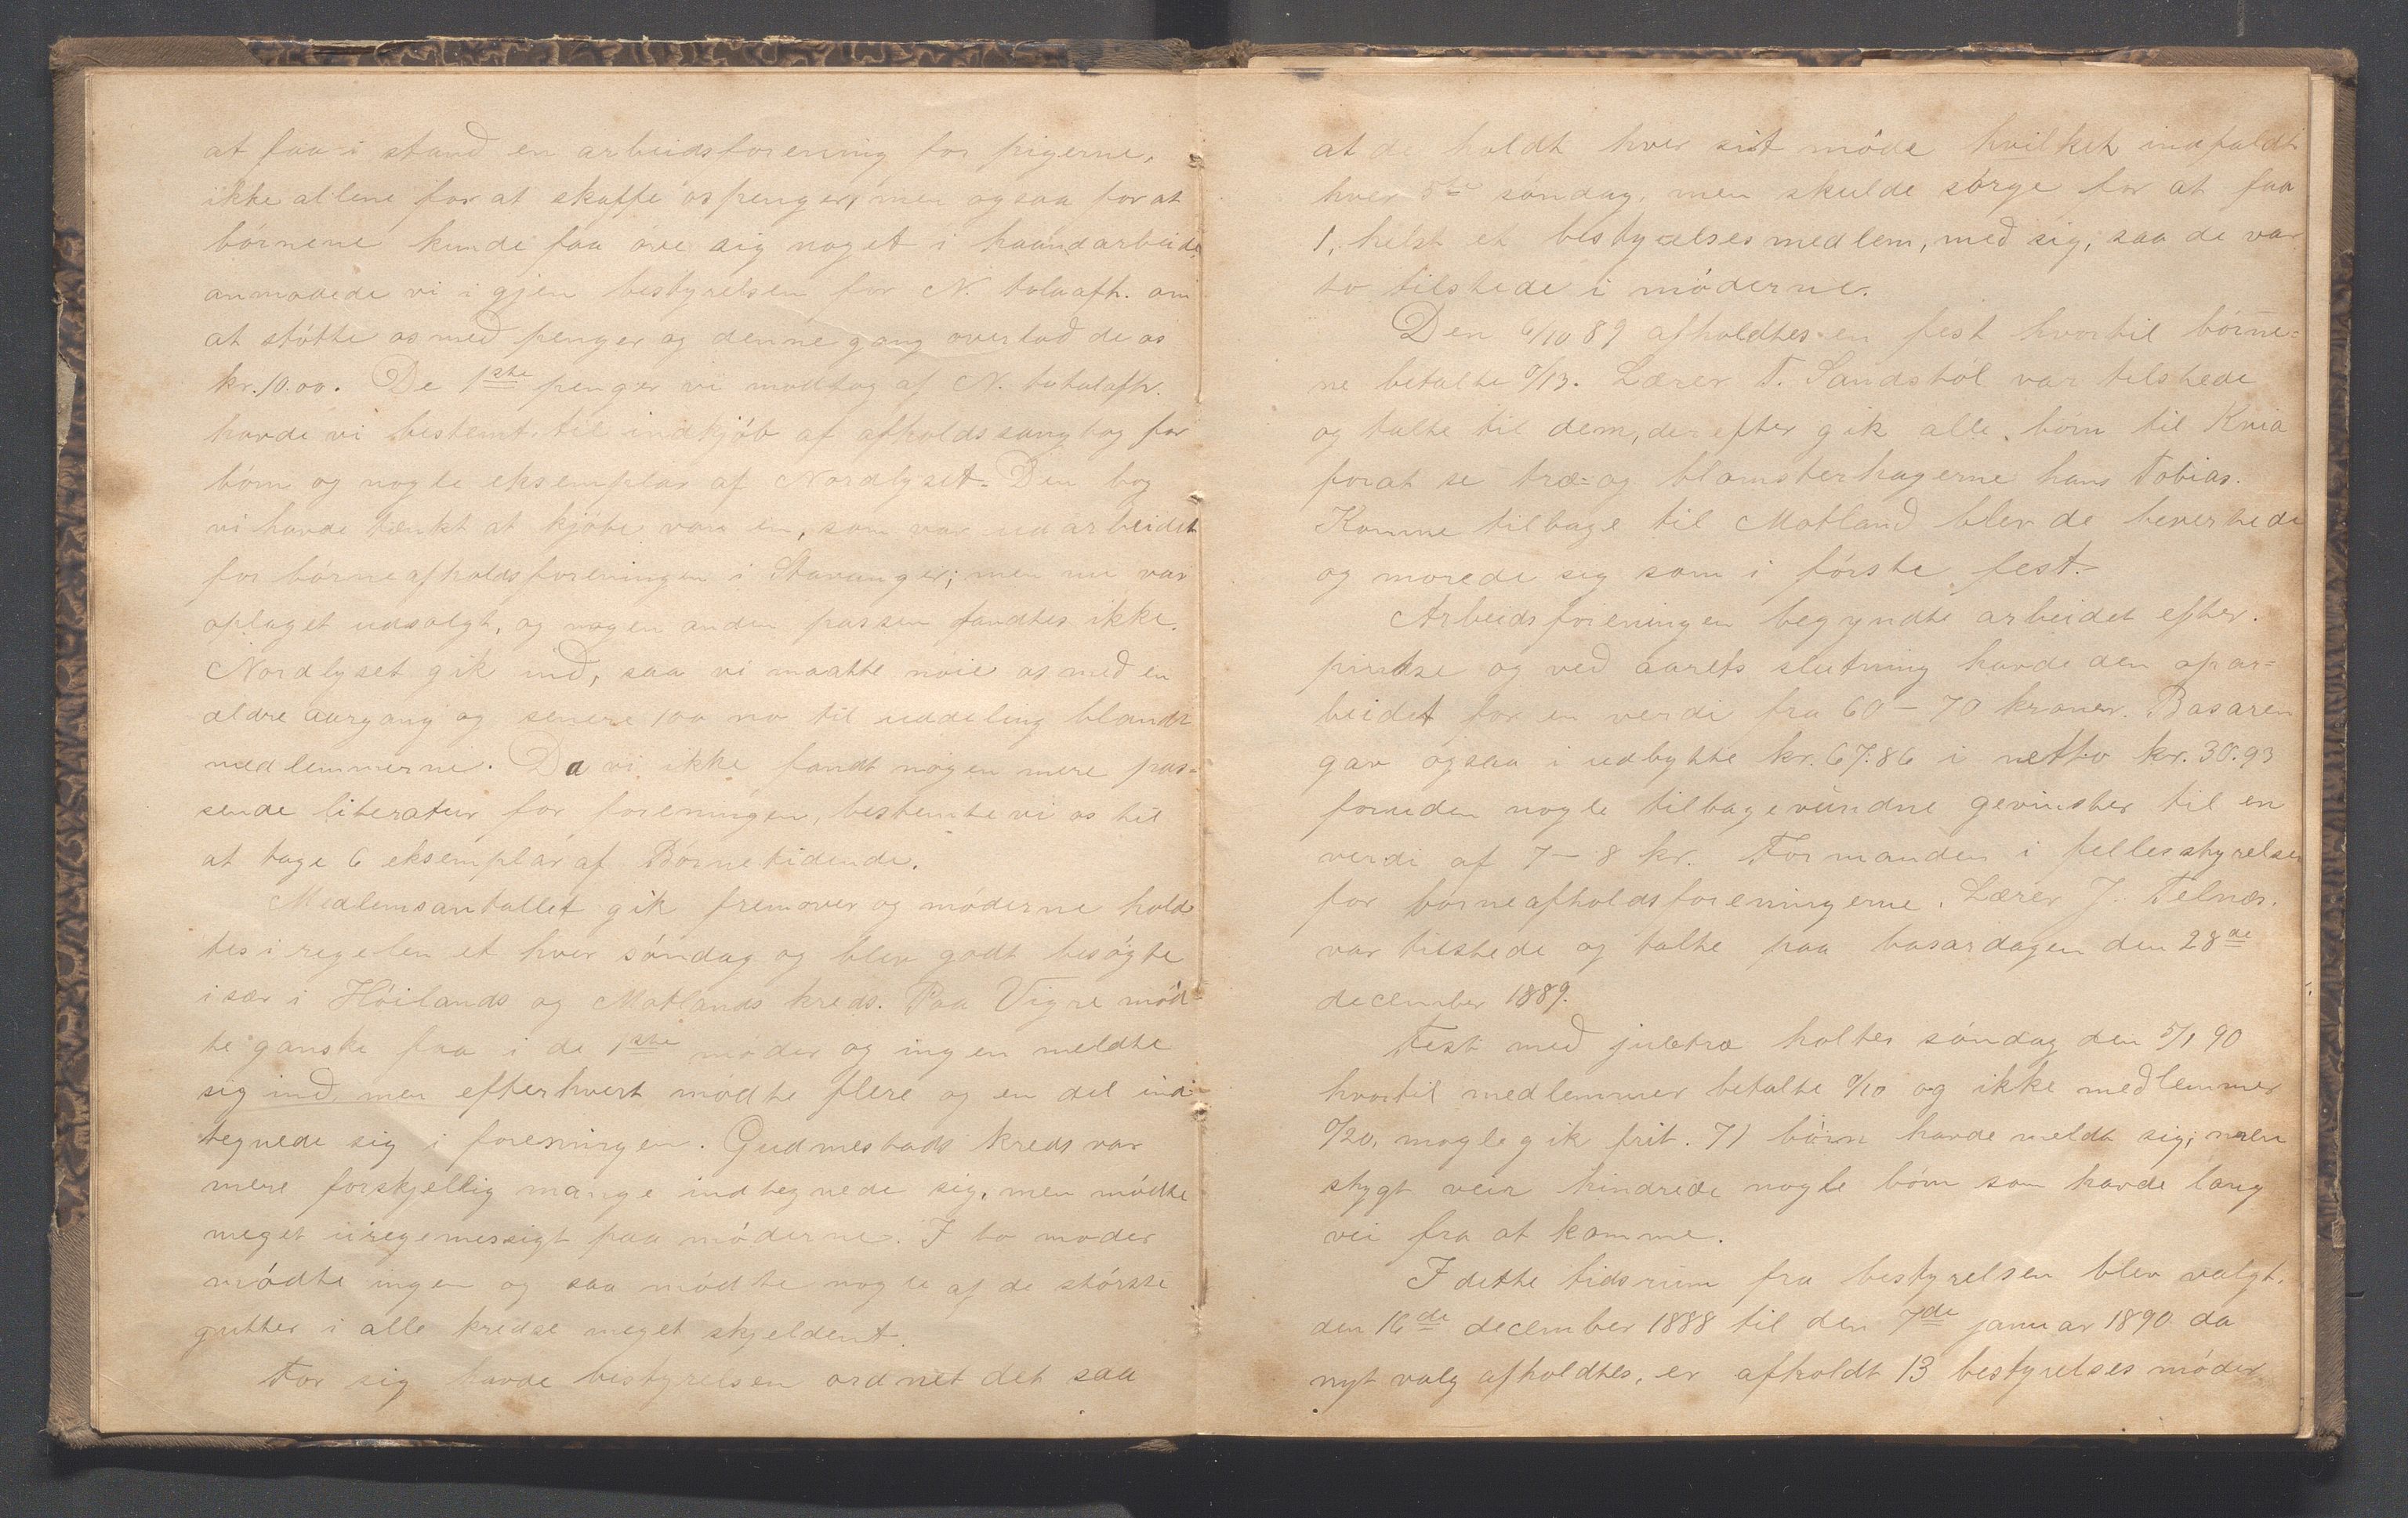 at faa i stand en arbeidsforening for pigerne,
ikke allene for at skaffe os penger, men ogsaa for at
börnene kunde faa öve sig noget i haandarbeide
anmodede vi igjen bestyrelsen for N. totaafh. om
at stötte os med penger og denne gang overlod de os
kr. 10.00. De 1ste penger vi modtog af N. totalafh.
havde vi bestemt til indkjöb af afholdssangbog for
börn og nogle eksemplar af Nordlyset. Den bog
vi havde tænkt at kjöbe var en, som var udarbeidet
for börneafholdsforeningen i Stavanger; men nu var
oplaget udsolgt, og nogen anden passen fandtes ikke.
Nordlyset gik ind, saa vi maatte nöie os med en
ældre aargang og senere 100 no til uddeling blandt
medlemmerne. Da vi ikke fandt nogen mere pas-
sende literatur for foreningen, bestemte vi os til
at tage 6 eksemplar af Börnetidende.
Medlemsantallet gik fremover og möderne hold
tes i regelen et hver söndag og blev godt besögte
især i Höilands og Motlands kreds. Paa Vigre möd-
te ganske faa i de 1ste möder og ingen meldte
sig ind, men efterhvert mödte flere og en del ind-
tegnede sig i foreningen. Gudmestads kreds var
mere forskjellig mange indtegnede sig, men mödte
meget uregemessigt paa möderne. I to moder
mödte ingen og saa mödte nogle af de störste
gutter i alle kredse meget skjeldent.
For sig havde bestyrelsen ordnet det saa
at de holdt hver sit möde hvilket indfaldt
hver 5te söndag, men skulde sörge for at faa
1, helst et bestyrelsesmedlem, med sig, saa de var
to tilstede i möderne.
Den 6/10 89 afholdtes en fest hvortil börne-
ne betalte 0/13. Lærer T. Sandstöl var tilstede
og talte til dem, derefter gik alle börn til Kvia
forat se træ- og blomsterhagerne hans Tobias.
Komne tilbage til Motland blev de bevertede
og morede sig som i förste fest.
Arbeidsforeningen begyndte arbeidet efter
pintse og ved aarets slutning havde den opar-
beidet for en verdi fra 60 - 70 kroner. Basaren
gav ogsaa i udbytte kr. 67.86 i netto kr. 30.93
foruden nogle tilbagevundne gevinster til en
verdi af 7 - 8 kr. Formanden i fellesstyrelsen
for börneafholdsforeningerne, Lærer J. Telnæs.
var tilstede og talte paa basardagen den 28de
december 1889.
Fest med juletræ holtes söndag den 5/1 90
hvortil medlemmer betalte 0/10 og ikke medlemmer
0/20, nogle gik frit. 71 börn havde meldt sig; men
stygt veir hindrede nogle börn som havde lang
vei fra at komme.
I dette tidsrum fra bestyrelsen blev valgt,
den 16de december 1888 til den 7de januar 1890 da
nyt valg afholdtes, er afholdt 13 bestyrelses möder